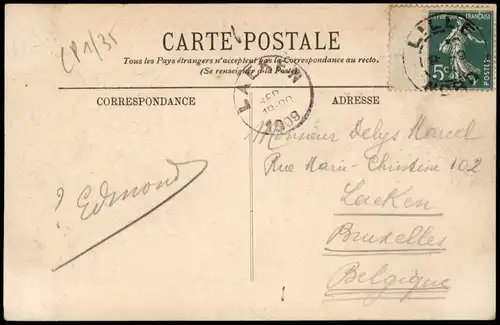 CP 1/35
CARTE POSTALE
Tous les Pays étrangers n'acceptent pas la Correspondance au recto.
(Se renseigner à la Poste).
CORRESPONDANCE
ADRESSE
REPUBLIQUE FRANÇAISE
5c
LILLE
NORD
LAEKEN
SEP
1909
Monsieur Delys Marcel
Rue Marie-Christine 102
Laeken
Bruxelles
Belgique
? Edmond